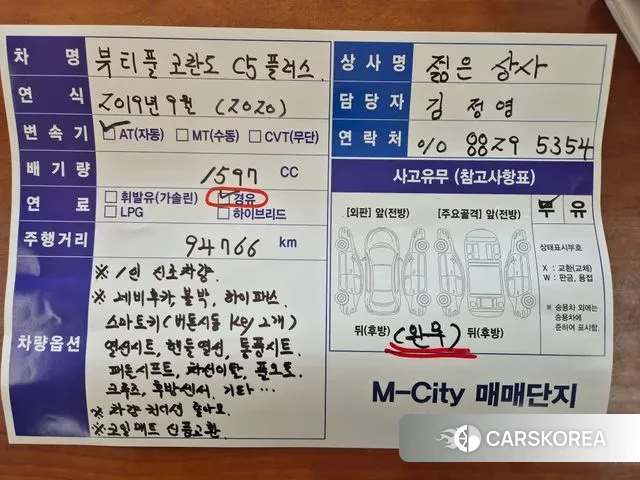 차 명 뷰티풀 코란도 C5 플러스.
연 식 2019년 9월 (2020)
변속기 AT(자동) MT(수동) CVT(무단)
배기량 1597 CC
연 료 휘발유(가솔린) 경유
LPG 하이브리드
주행거리 94766 km
차량옵션
※ 1인 신조차량.
※ 네비후카 블박, 하이패스.
스마트키(버튼시동 key 2개)
열선시트, 핸들열선, 통풍시트.
패들시프트, 차선이탈, 풀오토.
크루즈, 후방센서. 기타 ...
※ 차량 컨디션 좋아요.
※ 코일매트 신품교환.
상사명 젊은 상사
담당자 김 정 영
연락처 010 8829 5354
사고유무 (참고사항표)
[외판] 앞(전방) [주요골격] 앞(전방)
무 유
상태표시부호
X : 교환(교체)
W : 판금, 용접
※ 승용차 외에는
승용차에
준하여 표시함.
뒤(후방) (완무) 뒤(후방)
M-City 매매단지
CARSKOREA